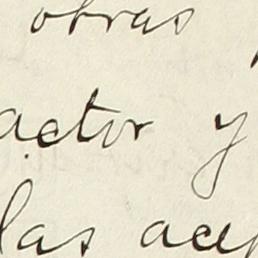 obras
actor y
las acep